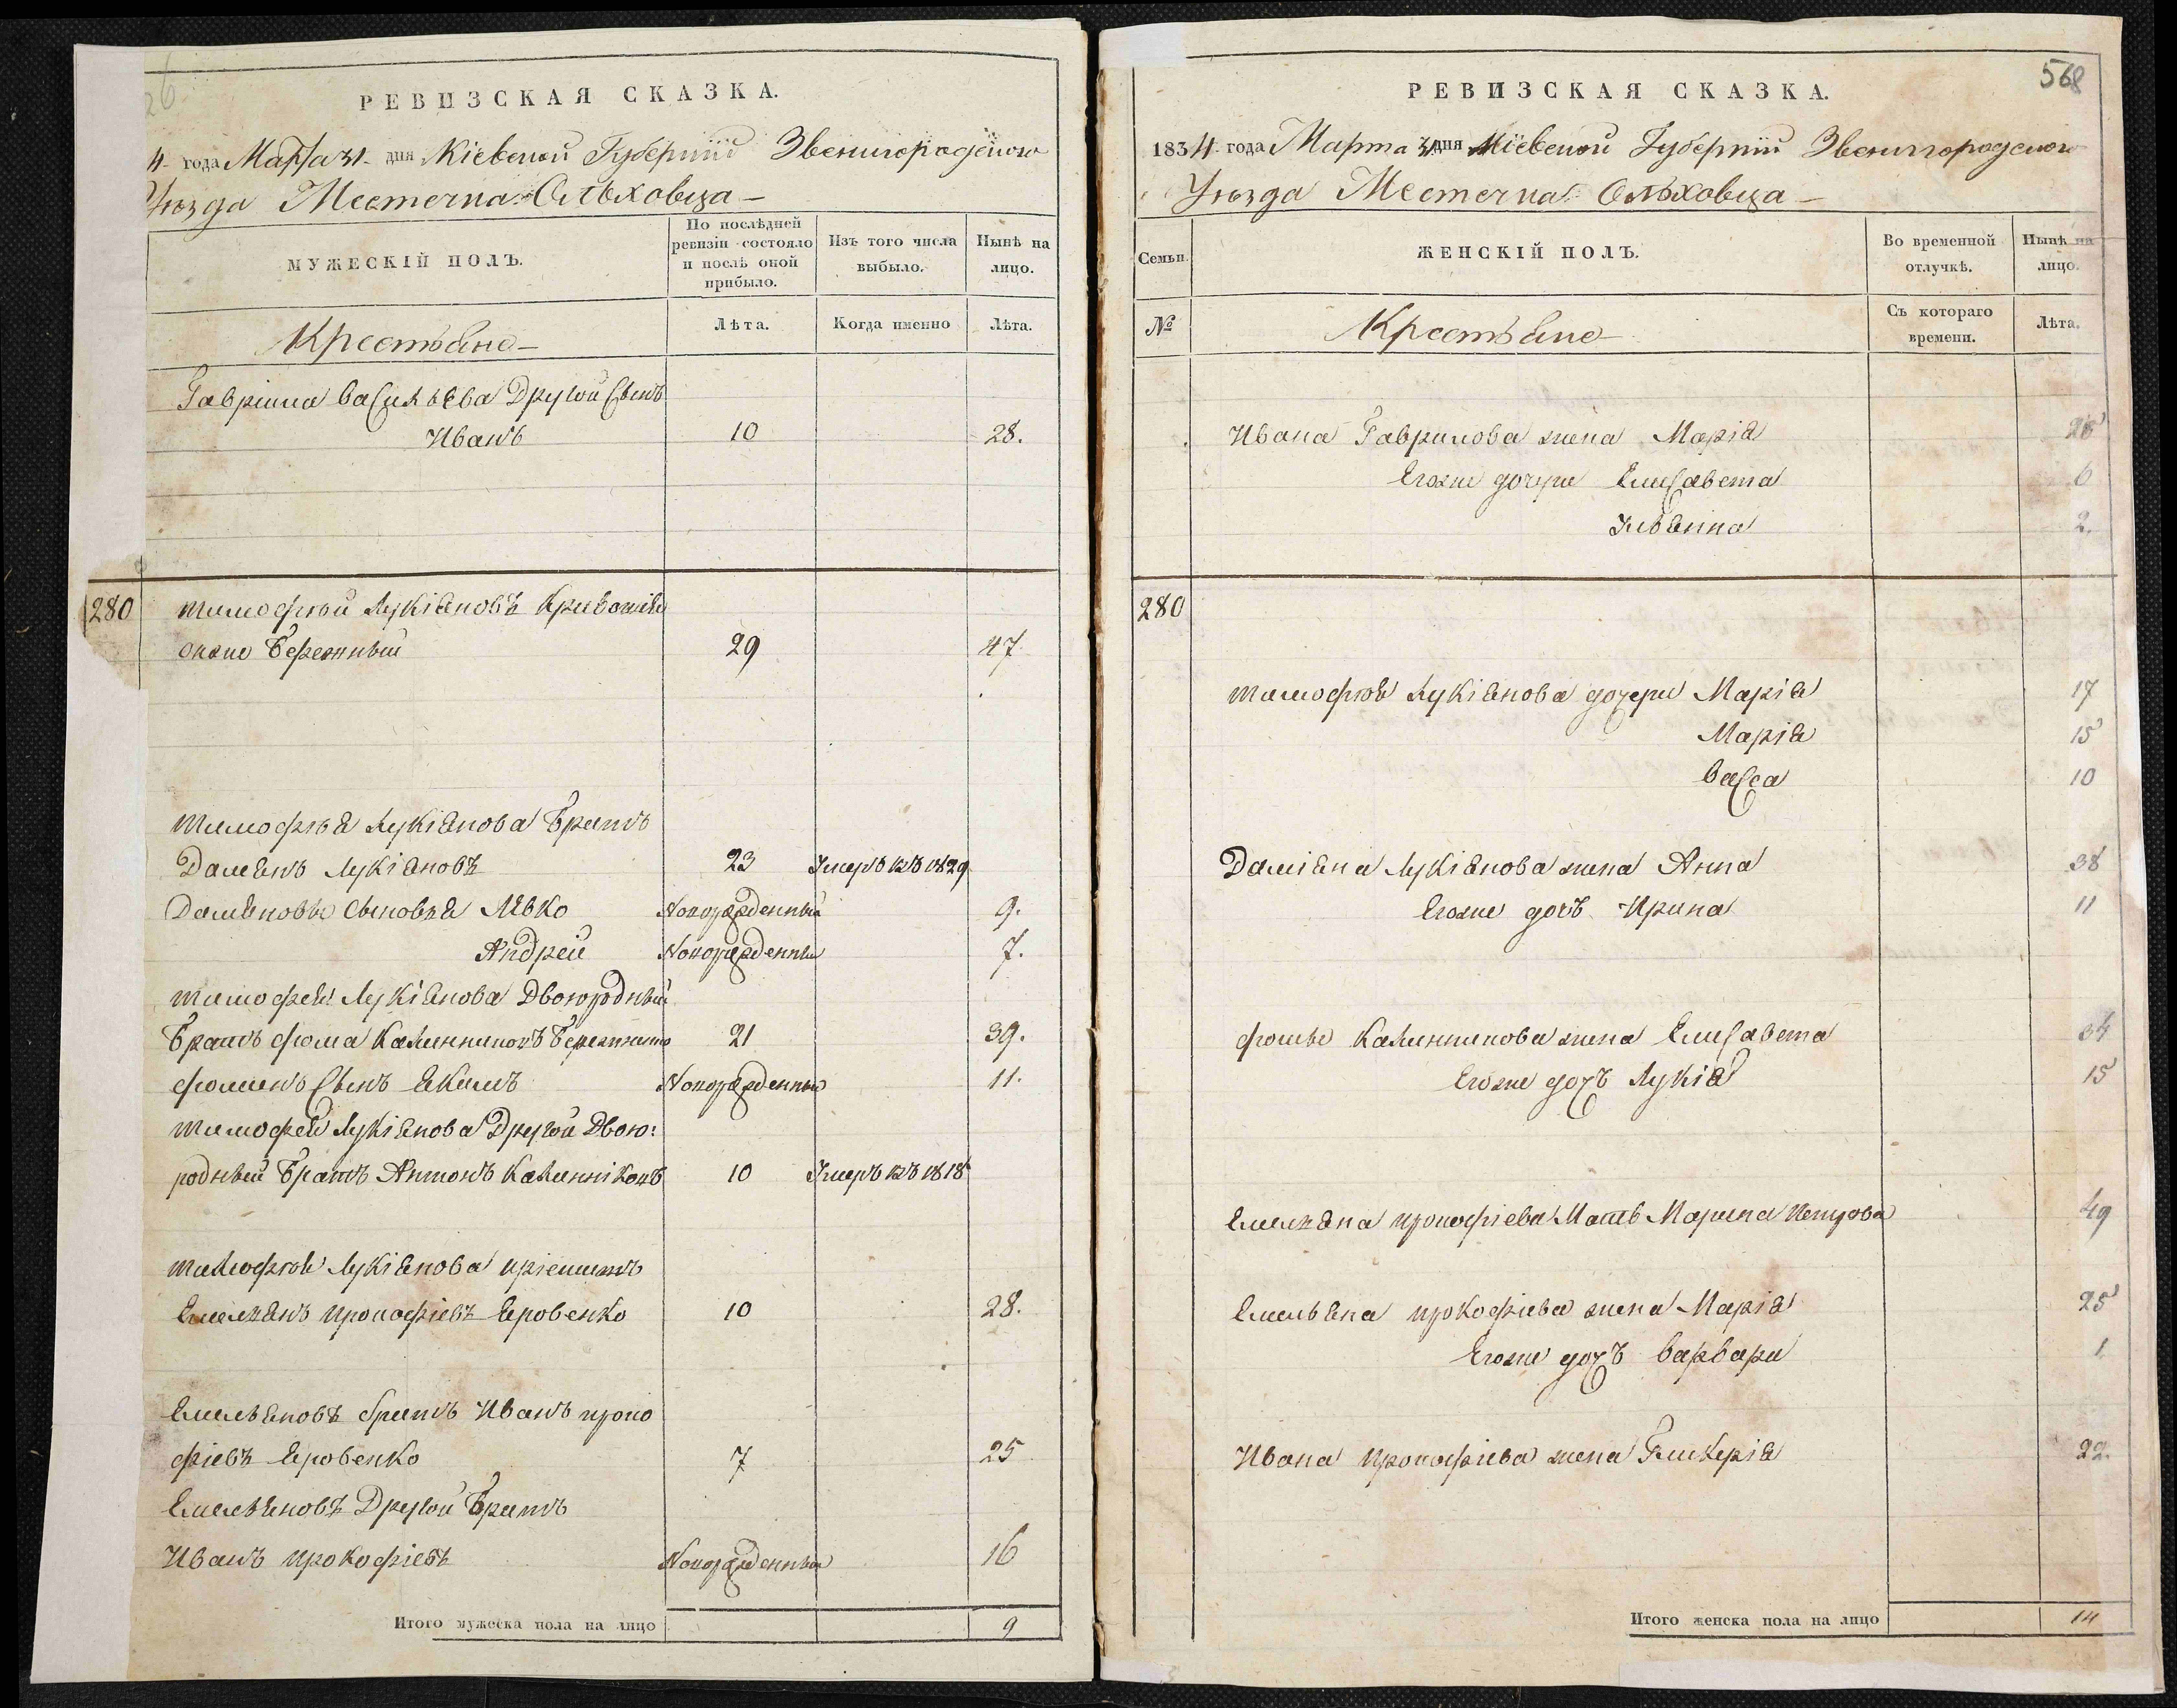 26
РЕВИЗСКАЯ СКАЗКА.
4 года Марта 31 дня Кіевской Губерніи Звенигородского
Уѣзда Местечка Ольховца
МУЖЕСКІЙ ПОЛЪ.
По послѣдней ревизіи состояло и послѣ оной прибыло.
Изъ того числа выбыло.
Нынѣ на лицо.
Крестьяне
Лѣта.
Когда именно
Лѣта.
Гавріила Васильева Другой Сынъ
Иванъ 10 28.
280 Тимофѣй Лукіановъ
онже Бережный 29 47
Тимофѣя Лукіанова Братъ
Даміянъ Лукіановъ 23 Умеръ въ 1829
Даміяновы Сыновья Левко Новорожденный 9.
Андрей Новорожденный 7.
Тимофея Лукіанова Двоюродный
Братъ Фома Калинниковъ 21 39.
Фоминъ Сынъ Екимъ Новорожденный 11.
Тимофея Лукіанова Другой Двою:
родный Братъ Антонъ Калинніковъ 10 Умеръ въ 1818
Тимофѣя Лукіанова пріемишъ
Емельянъ Прокофіевъ Яровенко 10 28.
Емельяновъ братъ Иванъ Проко
фіевъ Яровенко 7 25
Емельяновъ Другой Братъ
Иванъ Прокофіевъ Новорожденный 16
Итого мужеска пола на лицо 9
568
РЕВИЗСКАЯ СКАЗКА.
1834 года Марта 31 дня Кіевской Губерніи Звенигородского
Уѣзда Местечка Ольховца
Семьи.
ЖЕНСКІЙ ПОЛЪ.
Во временной отлучкѣ.
Нынѣ на лицо.
№
Крестьяне
Съ котораго времени.
Лѣта.
Ивана Гаврилова жена Марія 26
Егоже дочери Елисавета 6
Ульянна 2.
280
Тимофѣя Лукіанова дочери Марія 17
Марія 15
Васса 10
Даміяна Лукіанова жена Анна 38
Егоже дочь Ирина 11
Фомы Калинникова жена Елисавета 34
Егоже дочъ Лукія 15
Емельяна Прокофіева Мать Марина 49
Емельяна Прокофиева жена Марія 25
Егоже дочъ Варвара 1
Ивана Прокофиева жена Гликерія 22.
Итого женска пола на лицо 14